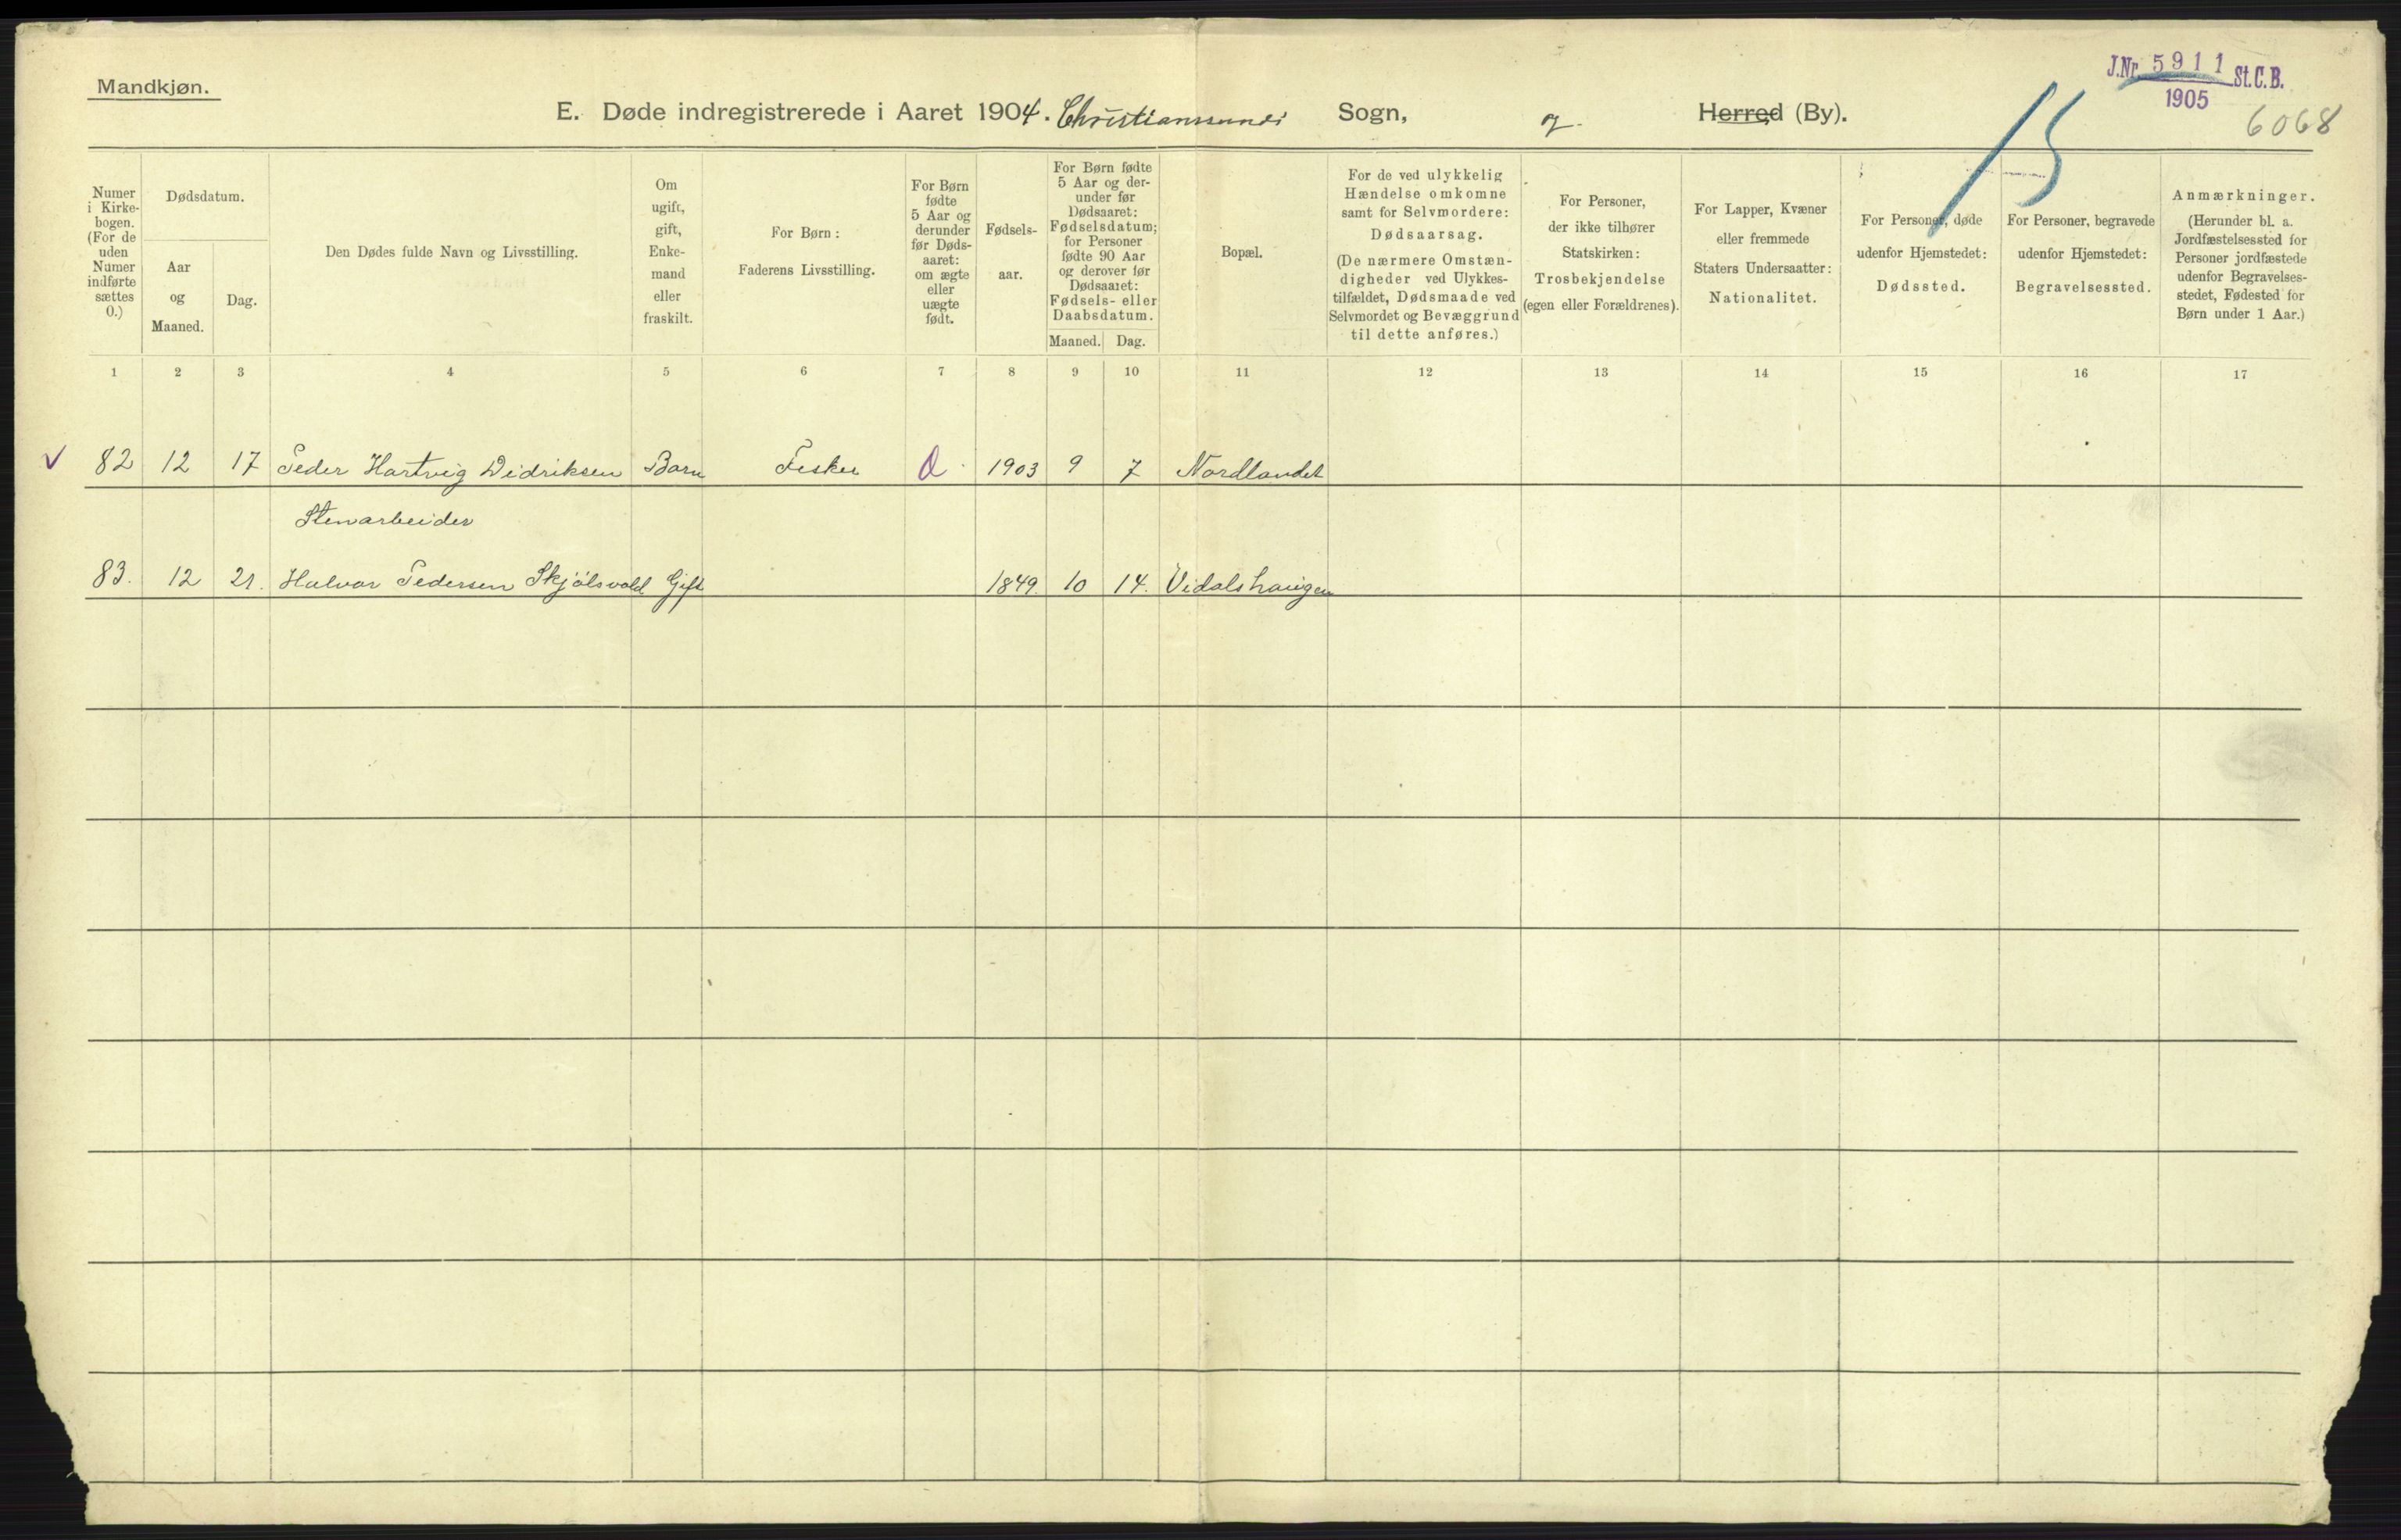 Mandkjøn.
J.Nr. 5911 St.C.B.
1905
15
6068
E. Døde indregistrerede i Aaret 1904. Christianssunds Sogn, og Herred (By).
Numer
i Kirke-
bogen.
(For de
uden
Numer
indførte
sættes
0.)
Dødsdatum.
Aar
og
Maaned.
Dag.
Den Dødes fulde Navn og Livsstilling.
Om
ugift,
gift,
Enke-
mand
eller
fraskilt.
For Børn:
Faderens Livsstilling.
For Børn
fødte
5 Aar og
derunder
før Døds-
aaret:
om ægte
eller
uægte
født.
Fødsels-
aar.
For Børn fødte
5 Aar og der-
under før
Dødsaaret:
Fødselsdatum;
for Personer
fødte 90 Aar
og derover før
Dødsaaret:
Fødsels- eller
Daabsdatum.
Maaned. Dag.
Bopæl.
For de ved ulykkelig
Hændelse omkomne
samt for Selvmordere:
Dødsaarsag.
(De nærmere Omstæn-
digheder ved Ulykkes-
tilfældet, Dødsmaade ved
Selvmordet og Bevæggrund
til dette anføres.)
For Personer,
der ikke tilhører
Statskirken:
Trosbekjendelse
(egen eller Forældrenes).
For Lapper, Kvæner
eller fremmede
Staters Undersaatter:
Nationalitet.
For Personer, døde
udenfor Hjemstedet:
Dødssted.
For Personer, begravede
udenfor Hjemstedet:
Begravelsessted.
Anmærkninger.
(Herunder bl. a.
Jordfæstelsessted for
Personer jordfæstede
udenfor Begravelses-
stedet, Fødested for
Børn under 1 Aar.)
1 2 3 4 5 6 7 8 9 10 11 12 13 14 15 16 17
82 12 17 Peder Hartvig Didriksen Barn Fisker 1903 9 7 Nordlandet
Stenarbeider
83. 12 21. Halvor Pedersen Skjölsvold Gift 1849. 10 14. Vidalshaugen